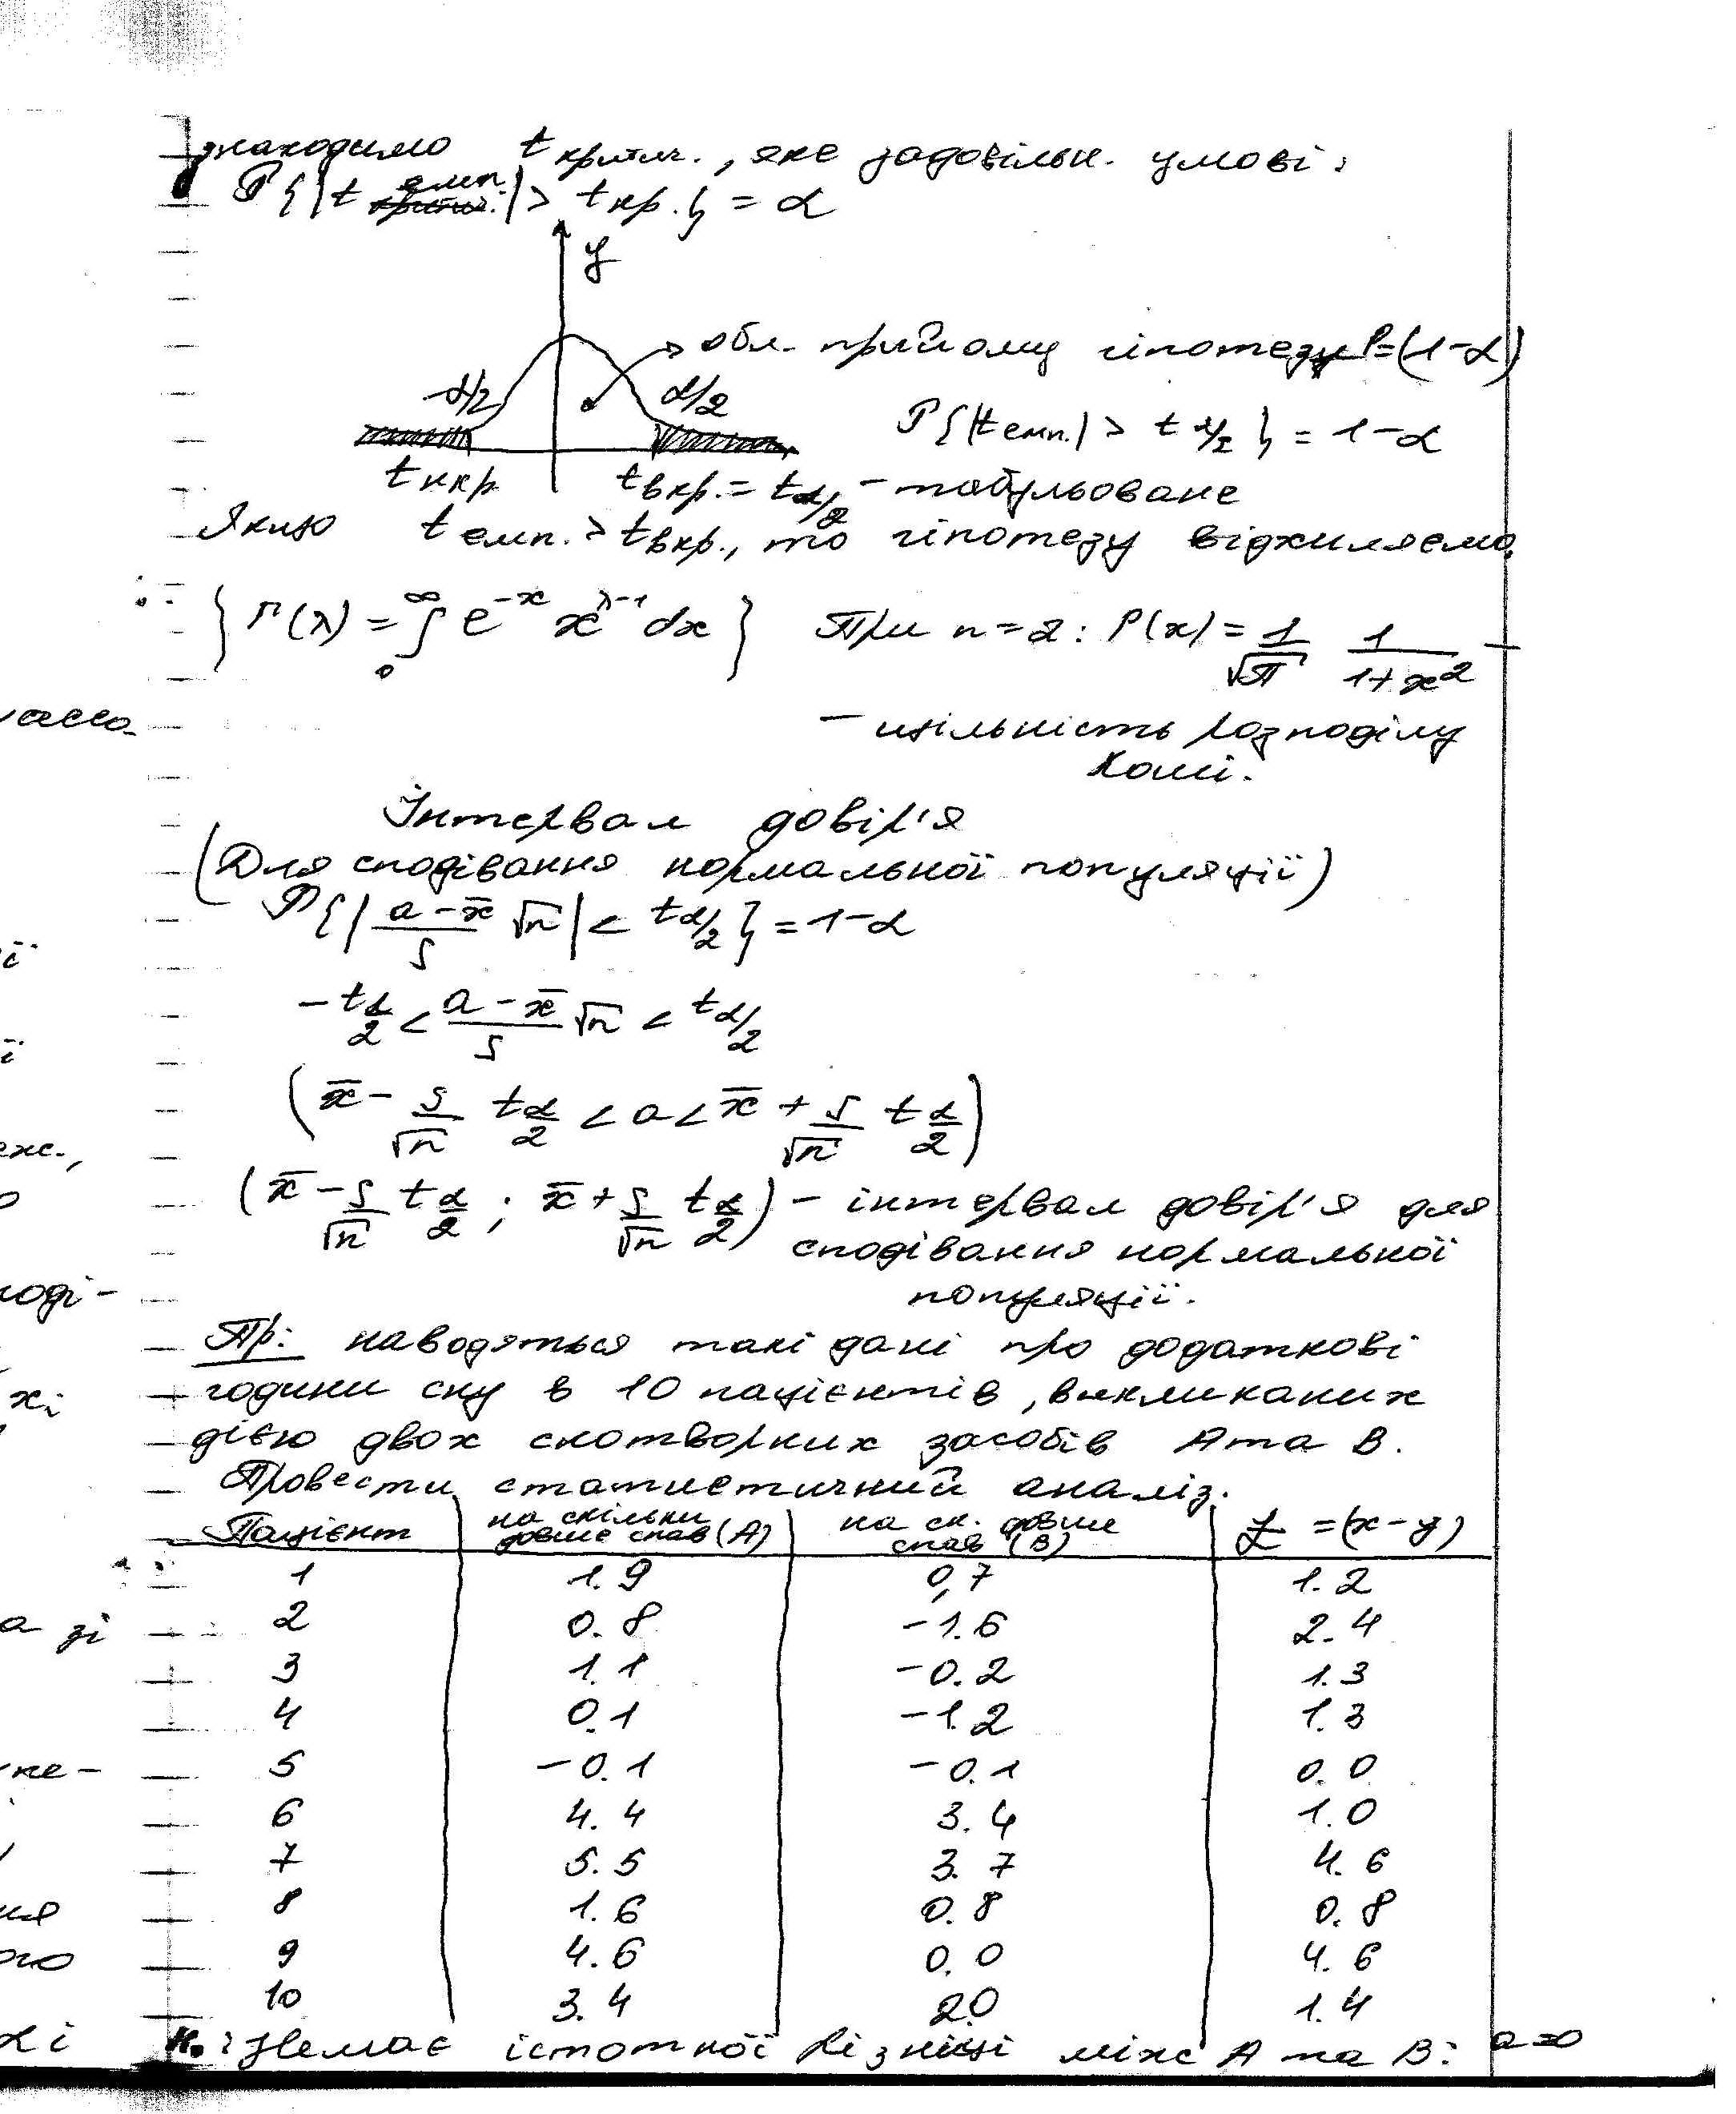 знаходимо t критич., яке задовільн. умові:
P{|t емп.| > t кр.} = α
y
обл. прийому гіпотези P=(1-α)
α/2 α/2
P{|t емп.| > t α/2} = 1-α
t н кр. t в кр. = t α/2 - табульоване
Якщо t емп. > t в кр., то гіпотезу відхиляємо.
{Γ(λ) = ∫₀^∞ e^{-x} x^{λ-1} dx} При n=2: P(x) = 1/√π 1/(1+x²) -
- щільність розподілу
Коші.
Інтервал довір'я
(Для сподівання нормальної популяції)
P{|(a-x̄)/S √n| < t α/2} = 1-α
-t α/2 < (a-x̄)/S √n < t α/2
(x̄ - S/√n t α/2 < a < x̄ + S/√n t α/2)
(x̄ - S/√n t α/2 ; x̄ + S/√n t α/2) - інтервал довір'я для
сподівання нормальної
популяції.
Пр: наводяться такі дані про додаткові
години сну в 10 пацієнтів, викликаних
дією двох снотворних засобів A та B.
Провести статистичний аналіз.
Пацієнт | на скільки довше спав (A) | на ск. довше спав (B) | z = (x-y)
1 1.9 0,7 1.2
2 0.8 -1.6 2.4
3 1.1 -0.2 1.3
4 0.1 -1.2 1.3
5 -0.1 -0.1 0.0
6 4.4 3.4 1.0
7 5.5 3.7 4.6
8 1.6 0.8 0.8
9 4.6 0.0 4.6
10 3.4 2.0 1.4
H₀: Немає істотної різниці між A та B: a=0